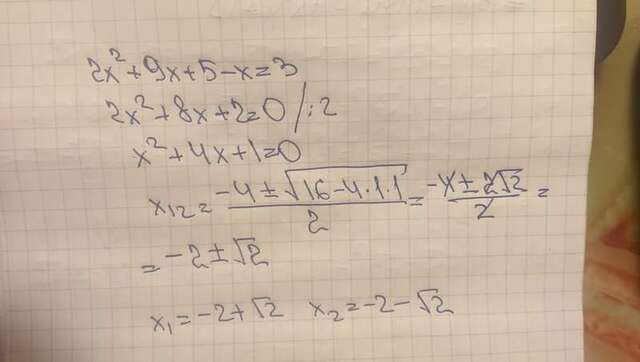 2x²+9x+5-x=3
2x²+8x+2=0/:2
x²+4x+1=0
x₁₂=(-4±√(16-4·1·1))/2=(-4±2√2)/2=
=-2±√2
x₁=-2+√2 x₂=-2-√2